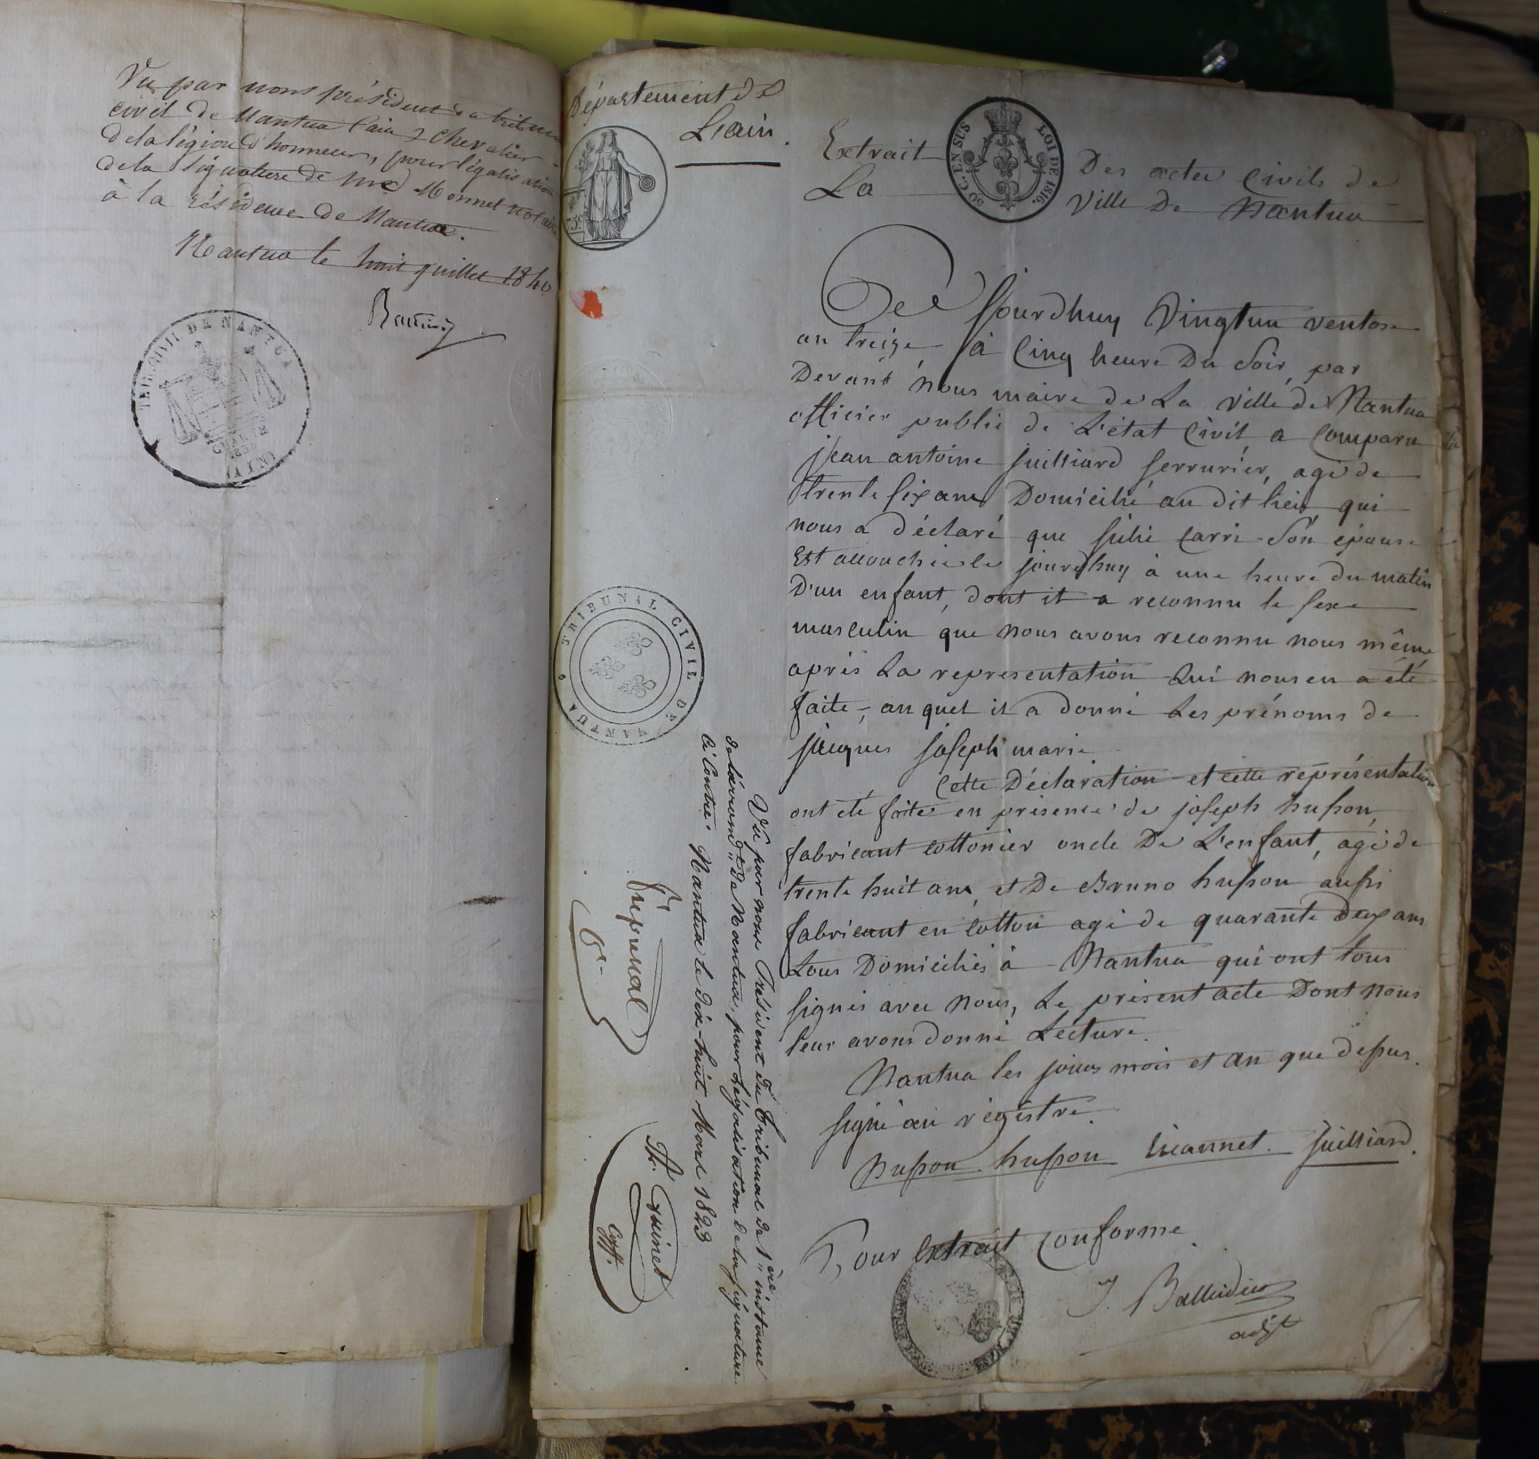 Vu par nous président du tribunal
civil de Nantua (ain) chevalier
de la légion d'honneur, pour légalisation
de la signature de Me Monnet notaire
à la résidence de Nantua.
Nantua le huit juillet 1840
TRIB. CIVIL DE NANTUA
(AIN)
Département de
L'ain.
Extrait Des actes civils de
La Ville De Nantua
50 C. EN SUS
LOI DE 1816.
Ce Jourdhuy Vingtun ventose
an treize à Cinq heure Du Soir, par
Devant Nous maire de La Ville de Nantua
officier public de L'état Civil, a Comparu
jean antoine juilliard serrurier, agé de
trente six ans Domicilié au dit lieu, qui
nous a déclaré que julie Carri Son épouse
Est accouchée le jourdhuy à une heure du matin
D'un enfant, dont il a reconnu le sexe
masculin que nous avons reconnu nous même
après La representation Qui nous en a été
faite, auquel il a donné Les prénoms de
jacques joseph marie
Cette Déclaration et cette représentation
ont été faite en présence de joseph husson,
fabricant cottonier oncle De L'enfant, agé de
trente huit ans, et De Bruno husson aussi
fabricant en Cotton agé de quarante deux ans
tous Domiciliés à Nantua qui ont tous
signés avec Nous, Le présent acte Dont Nous
leur avons donné Lecture.
Nantua les jour mois et an que dessus.
signé au régistre
husson husson Juilliard.
Pour Extrait Conforme
adjt
TRIBUNAL CIVIL DE NANTUA
Vu par nous Président du Tribunal de 1ère instance
de l'arrondt de Nantua, pour légalisation de la signature
ci Contre. Nantua le dix-huit Mars 1823
Th. Guinet
Cff.